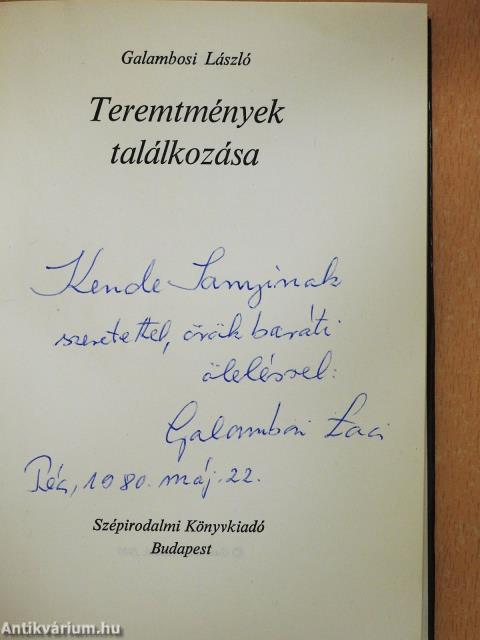 Galambosi László
Teremtmények
találkozása
Kende Sanyinak
szeretettel, örök baráti
öleléssel:
Galambosi Laci
Pécs, 1980. máj. 22.
Szépirodalmi Könyvkiadó
Budapest
Antikvárium.hu